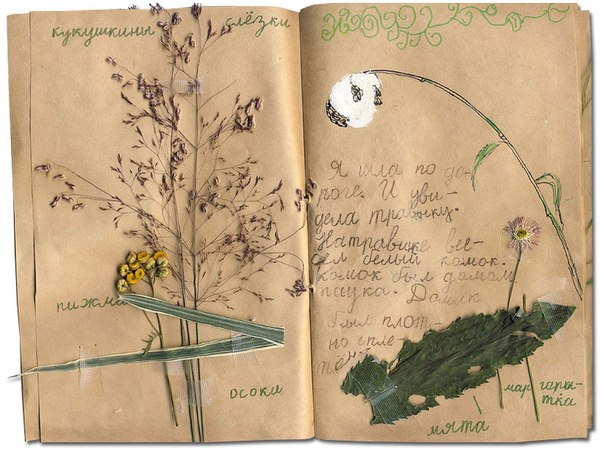 кукушкины слёзки
пижма
осоки
Я шла по до-
роге. И уви-
дела травинку.
На травинке ве-
сел белый комок.
комок был домом
паука. Домик
был плот-
но спле-
тён
мар гары-
тка
мята